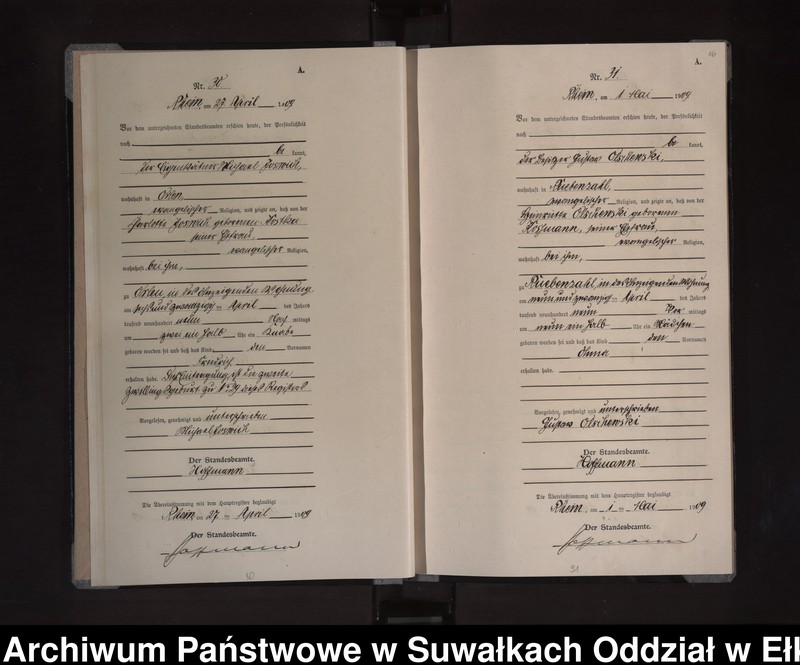 A.
Nr. 30
Rhein, am 27. April 1909
Vor dem unterzeichneten Standesbeamten erschien heute, der Persönlichkeit
nach
be kannt,
der Eigenkätner Michael
wohnhaft in Orlen
evangelischer Religion, und zeigte an, daß von der
geborenen
seiner Ehefrau,
evangelischer Religion,
wohnhaft bei ihm,
zu Orlen, in des Anzeigenden Wohnung
am sechsundzwanzigsten April des Jahres
tausend neunhundert neun Nach mittags
um zwei ein halb Uhr ein Knabe
geboren worden sei und daß das Kind den Vornamen
Friedrich
erhalten habe. Diese Eintragung ist die zweite
Zwillingsgeburt zu N° 29 dieses Registers
Vorgelesen, genehmigt und unterschrieben
Michael
Der Standesbeamte.
Hoffmann
Die Übereinstimmung mit dem Hauptregister beglaubigt
Rhein, am 27. ten April 1909
Der Standesbeamte.
Hoffmann
30
A.
Nr. 31.
Rhein, am 1 Mai 1909
Vor dem unterzeichneten Standesbeamten erschien heute, der Persönlichkeit
nach
be kannt,
der Besitzer Gustav Olschewski,
wohnhaft in Rübenzahl,
evangelischer Religion, und zeigte an, daß von der
Henriette Olschewski geborenen
seiner Ehefrau,
evangelischer Religion,
wohnhaft bei ihm,
zu Rübenzahl in des Anzeigenden Wohnung
am neunundzwanzigsten April des Jahres
tausend neunhundert neun Vor mittags
um neun ein halb Uhr ein Mädchen
geboren worden sei und daß das Kind den Vornamen
erhalten habe.
Vorgelesen, genehmigt und unterschrieben
Gustav Olschewski
Der Standesbeamte.
Hoffmann
Die Übereinstimmung mit dem Hauptregister beglaubigt
Rhein, am 1 ten Mai 1909
Der Standesbeamte.
Hoffmann
31
Archiwum Państwowe w Suwałkach Oddział w Ełk